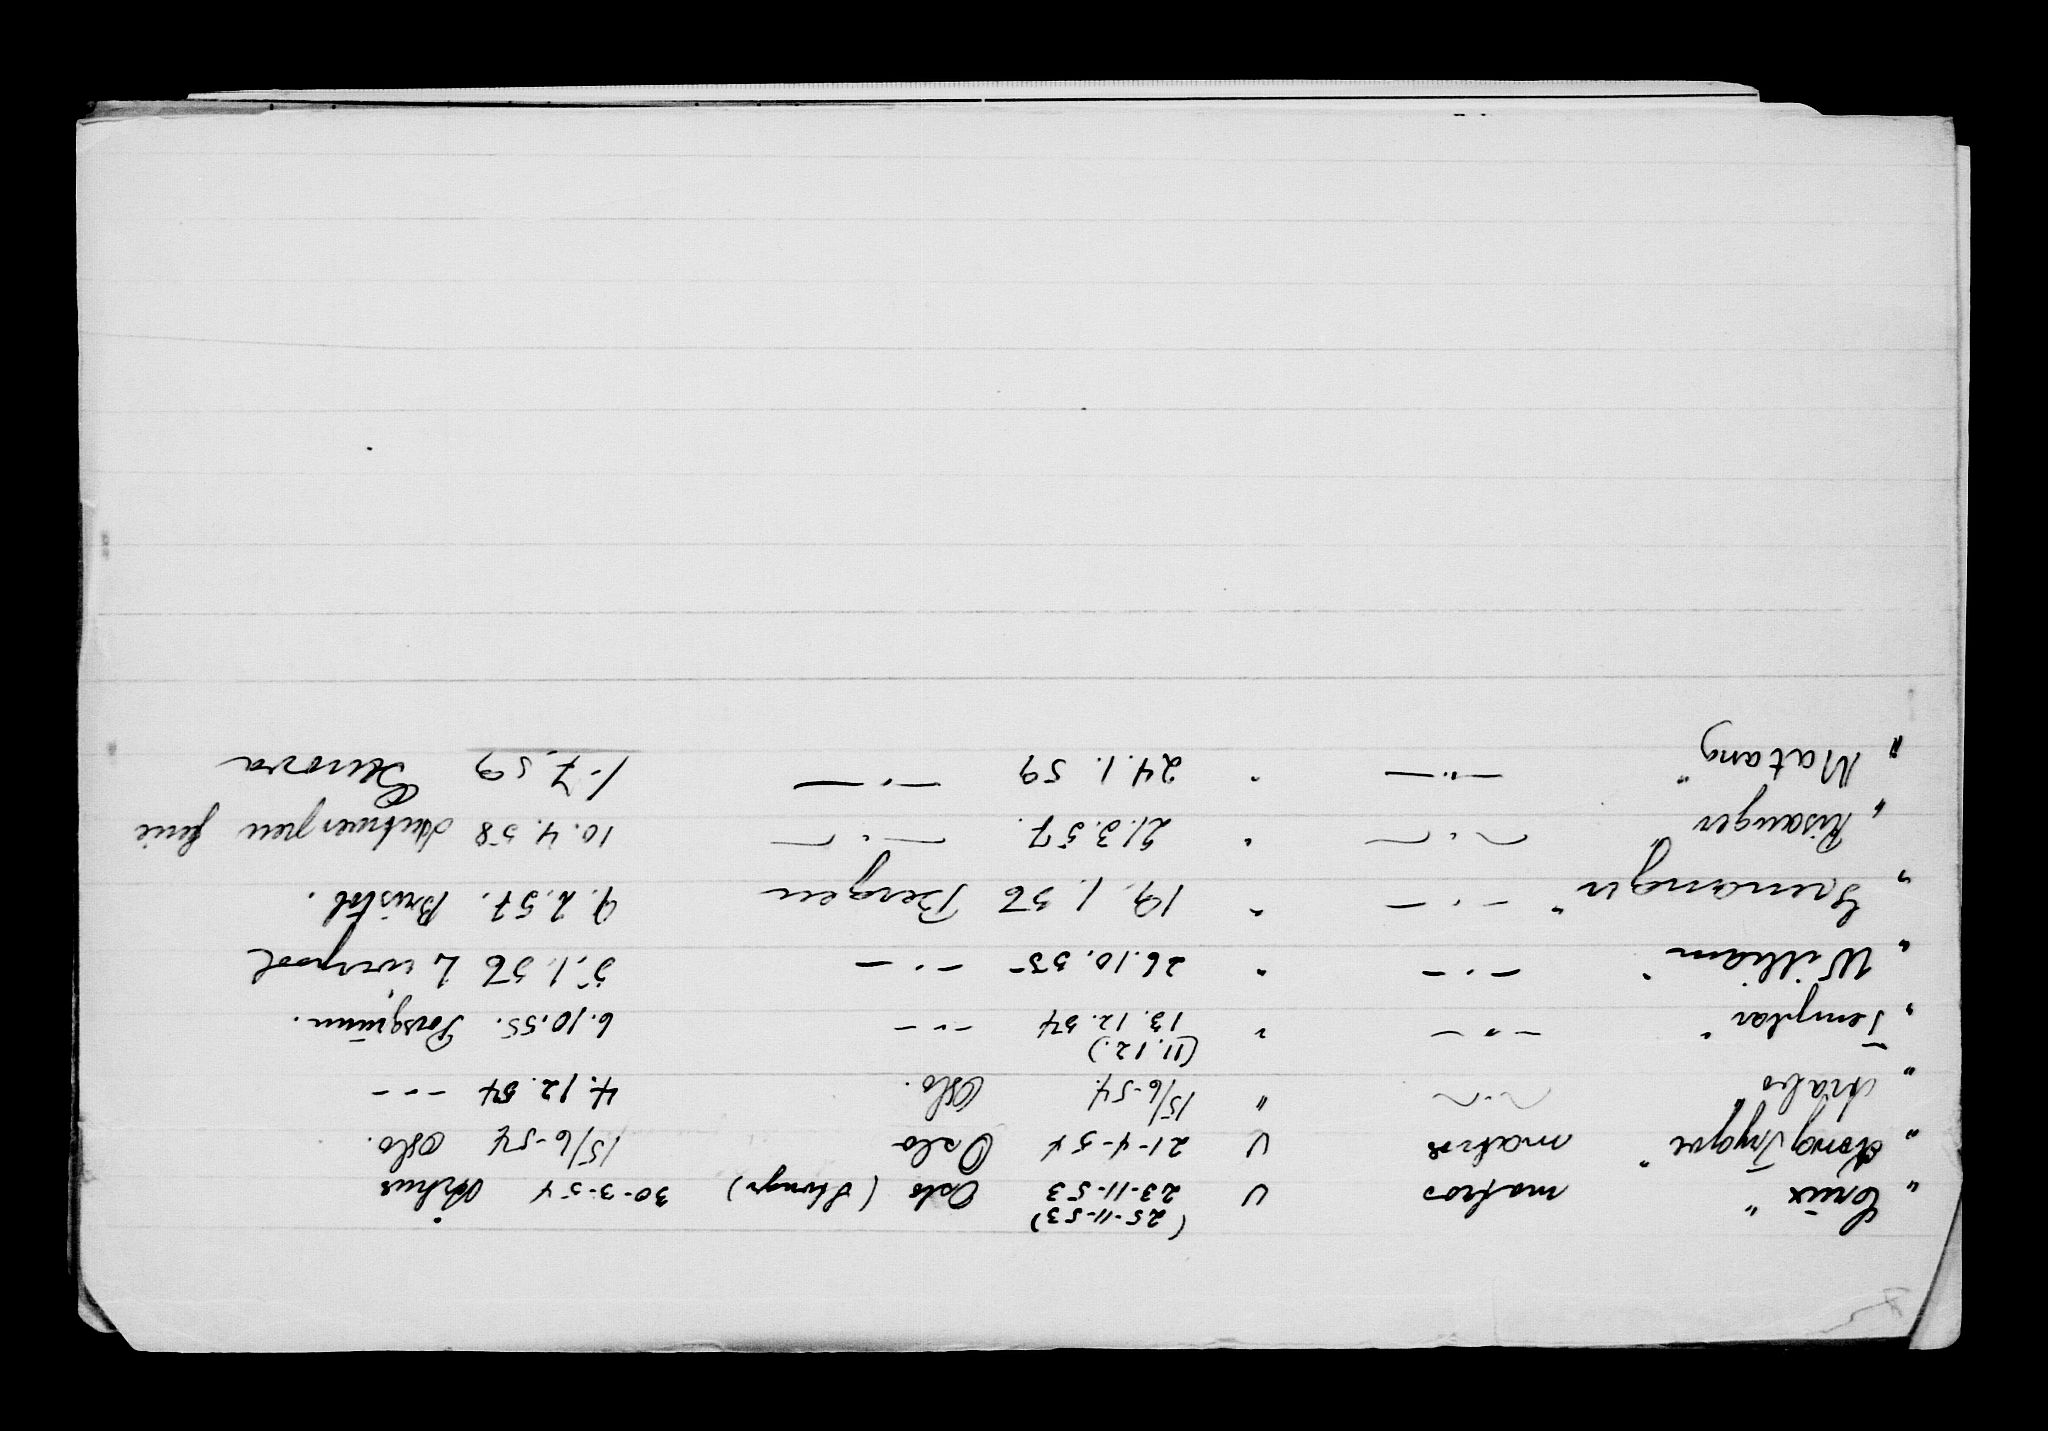 (25-11-53)
"Crux" matros U 23-11-53 Oslo (Stvngr) 30-3-54 Århus
"Kong Trygve" matros U 21-4-54 Oslo 15/6-54 Oslo.
" " -"- " 15/6-54. Oslo. 4.12.54 -"-
(11.12.)
"Templar" -"- " 13.12.54 -"- 6.10.55. Porsgrunn.
"William" -"- " 26.10.55 -"- 5.1.56 Liverpool
"Grenanger" -"- " 19.1.56 Bergen 9.2.57. Bristol.
"Risanger" -"- " 21.3.57. -"- 10.4.58 Antwerpen ferie
"Matang" -"- " 24.1.59 -"- 1.7.59 Genova